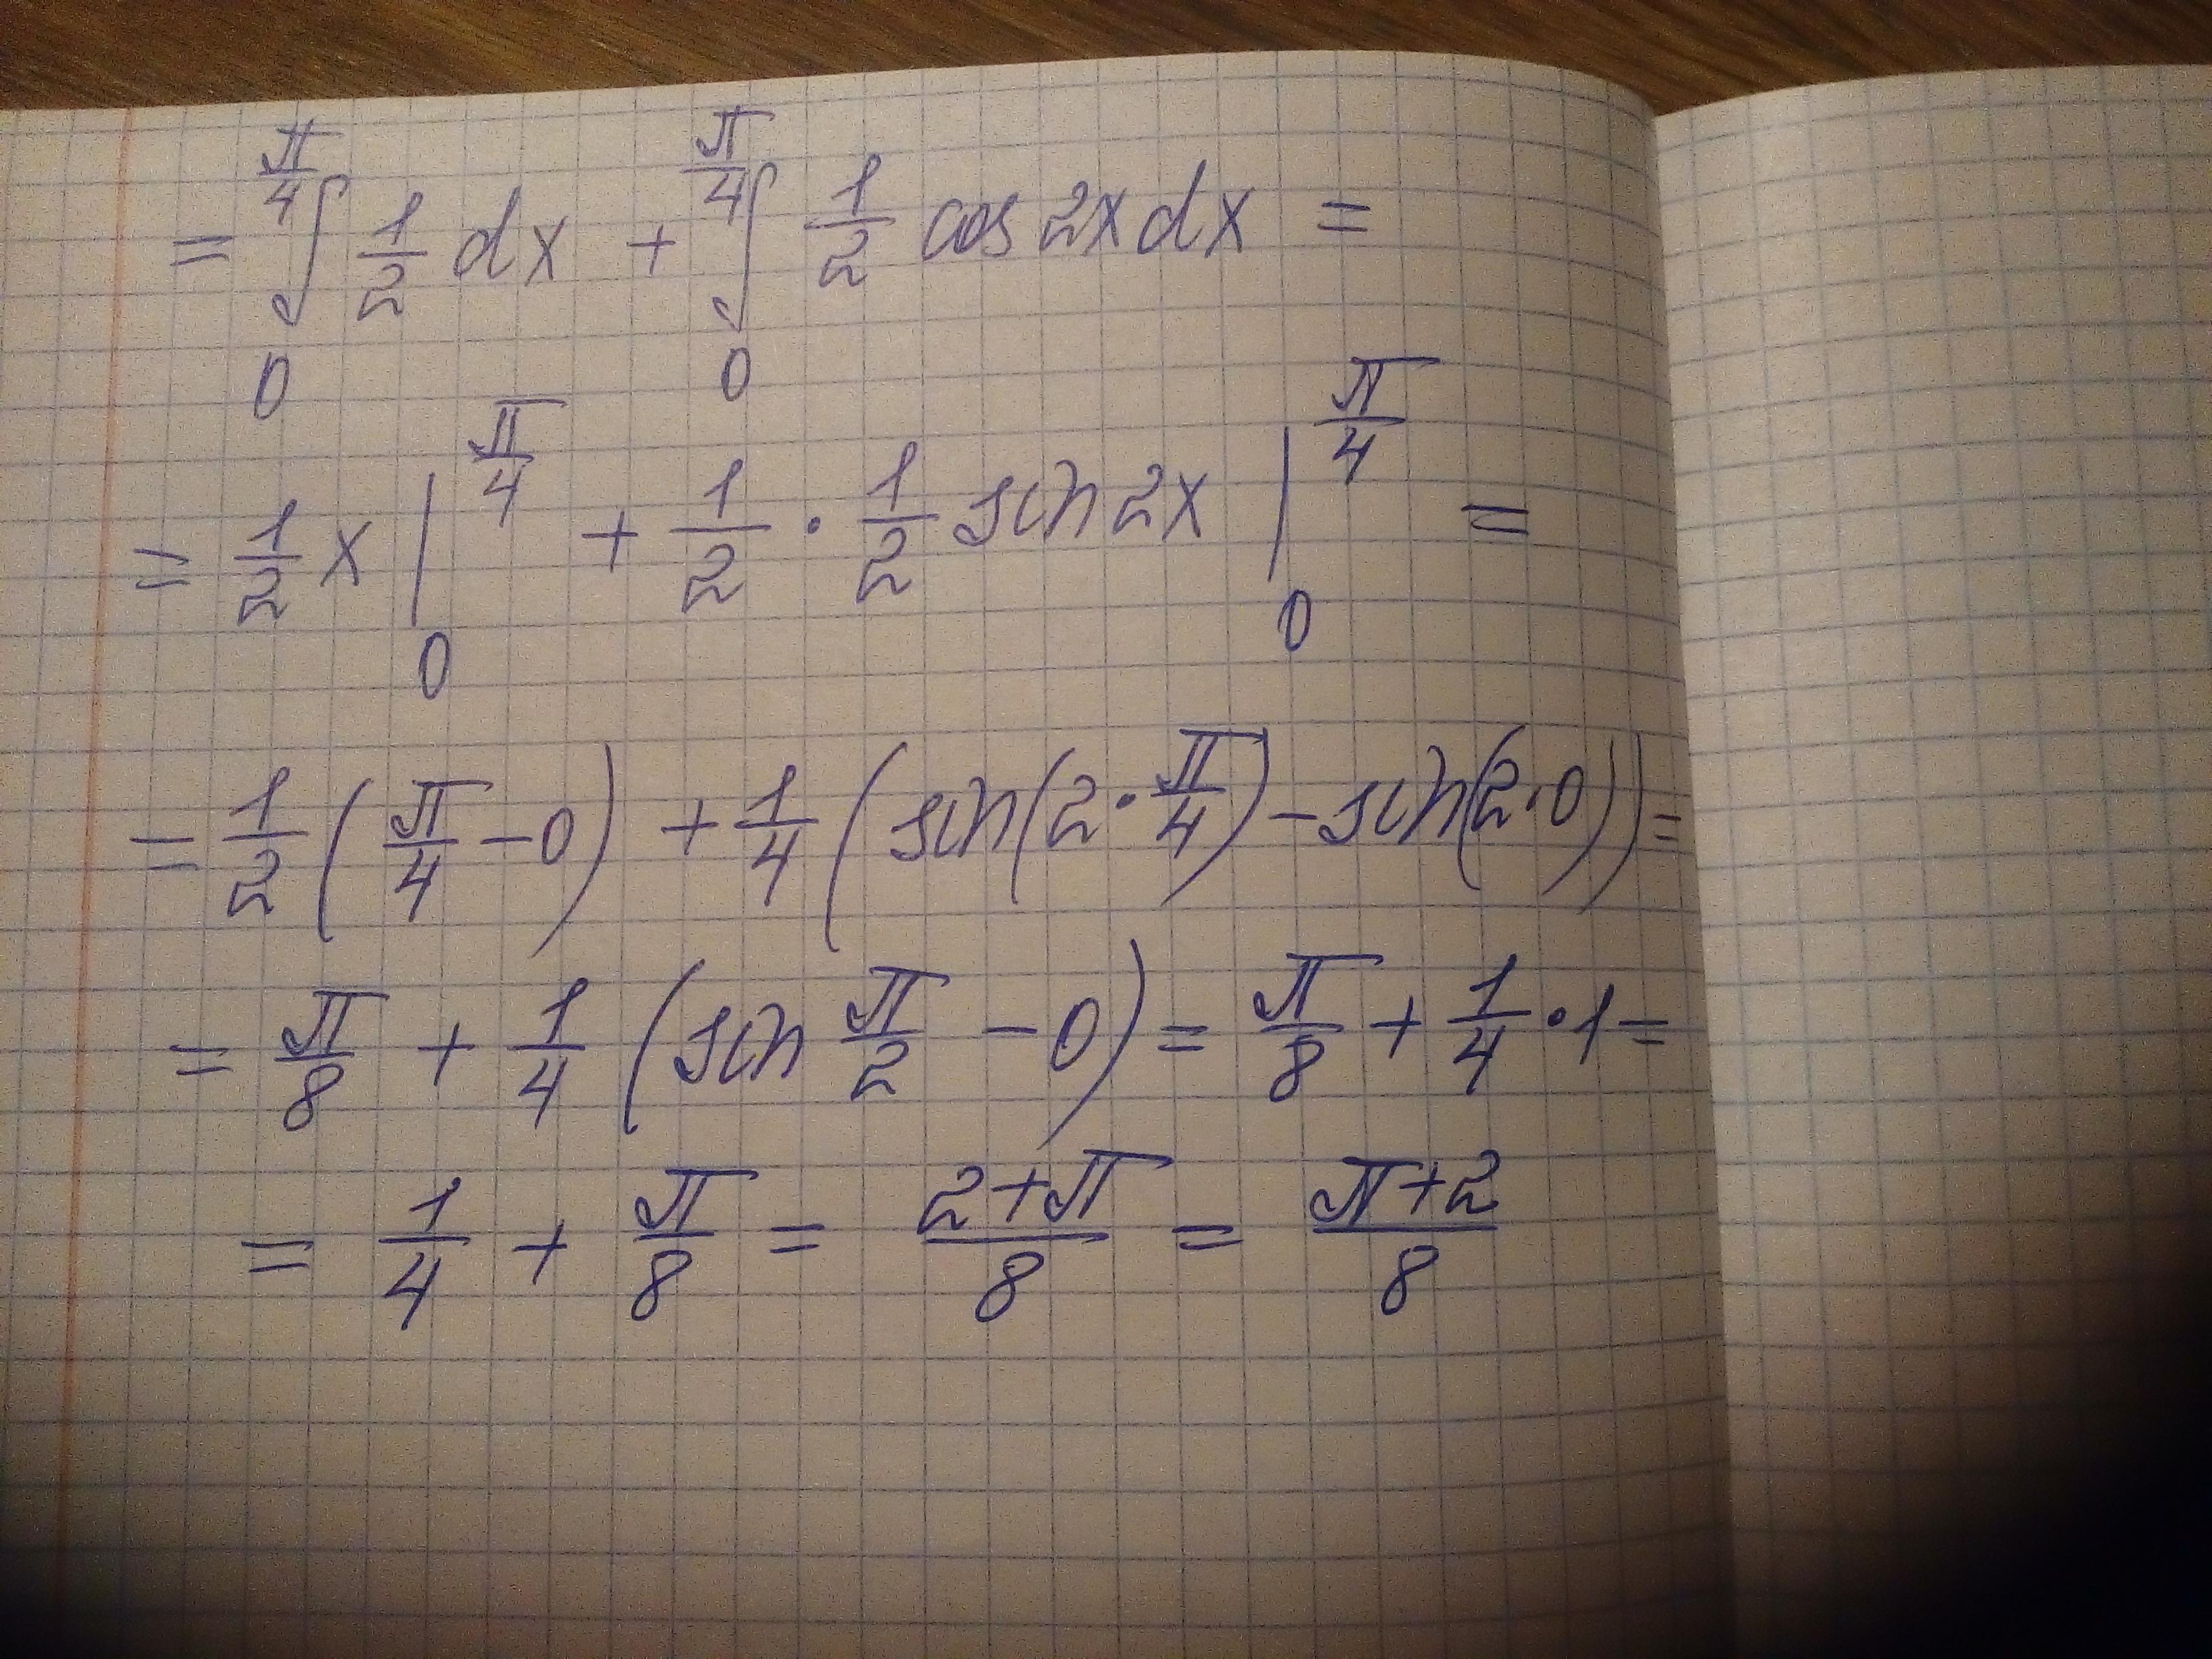 = ∫₀^{π/4} 1/2 dx + ∫₀^{π/4} 1/2 cos 2x dx =
= 1/2 x |₀^{π/4} + 1/2 · 1/2 sin 2x |₀^{π/4} =
= 1/2 (π/4 − 0) + 1/4 (sin(2 · π/4) − sin(2 · 0)) =
= π/8 + 1/4 (sin π/2 − 0) = π/8 + 1/4 · 1 =
= 1/4 + π/8 = (2+π)/8 = (π+2)/8